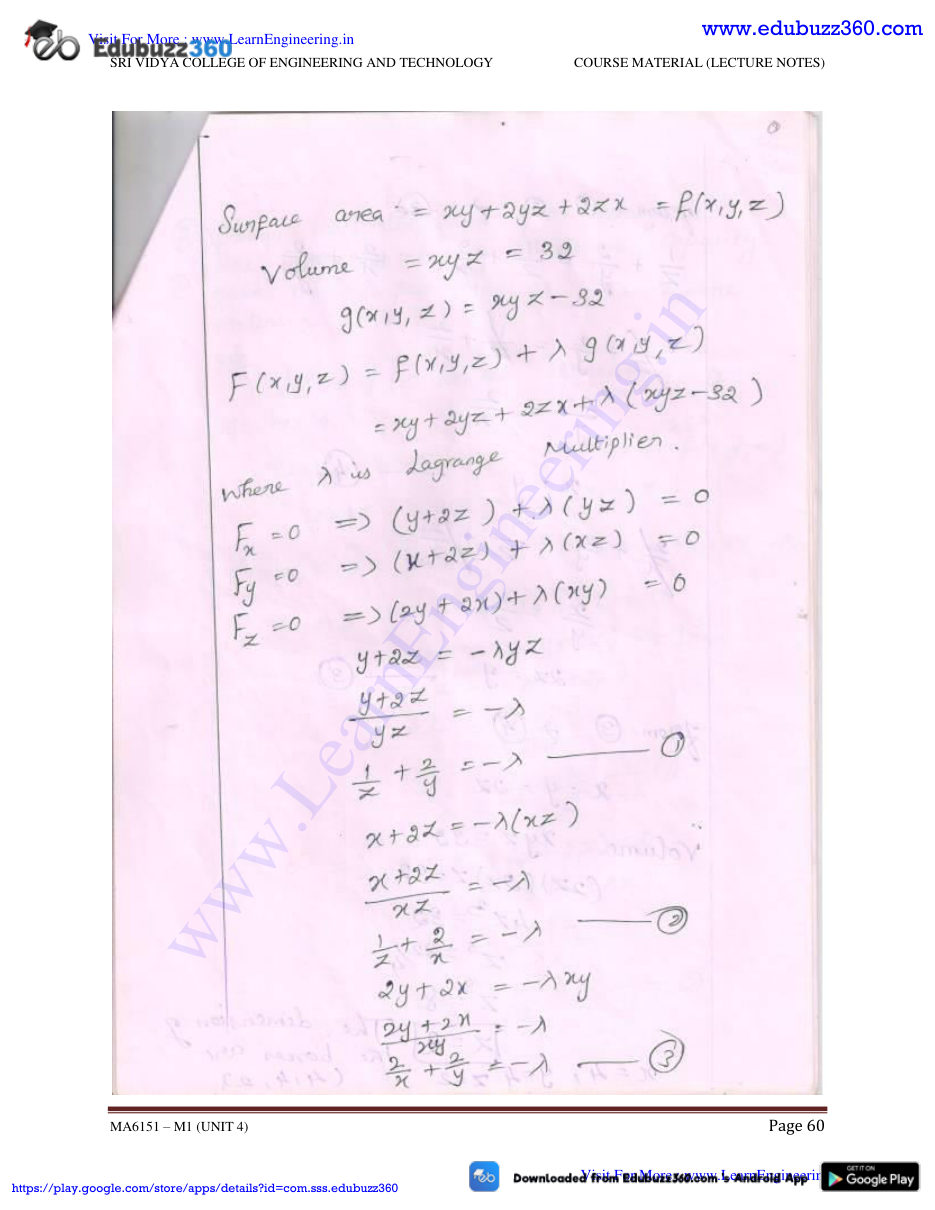 www.edubuzz360.com
Visit For More : www.LearnEngineering.in
Edubuzz360
SRI VIDYA COLLEGE OF ENGINEERING AND TECHNOLOGY COURSE MATERIAL (LECTURE NOTES)
Surface area = xy + 2yz + 2zx = f(x,y,z)
Volume = xyz = 32
g(x,y,z) = xyz - 32
F(x,y,z) = f(x,y,z) + λ g(x,y,z)
= xy + 2yz + 2zx + λ(xyz - 32)
Where λ is Lagrange Multiplier.
F_x = 0 => (y+2z) + λ(yz) = 0
F_y = 0 => (x+2z) + λ(xz) = 0
F_z = 0 => (2y+2x) + λ(xy) = 0
y+2z = -λyz
(y+2z)/(yz) = -λ
1/z + 2/y = -λ —— ①
x+2z = -λ(xz)
(x+2z)/(xz) = -λ
1/z + 2/x = -λ —— ②
2y+2x = -λxy
(2y+2x)/(xy) = -λ
2/x + 2/y = -λ —— ③
www.LearnEngineering.in
MA6151 – M1 (UNIT 4) Page 60
https://play.google.com/store/apps/details?id=com.sss.edubuzz360
Downloaded from EduBuzz360.com 's Android App
GET IT ON
Google Play